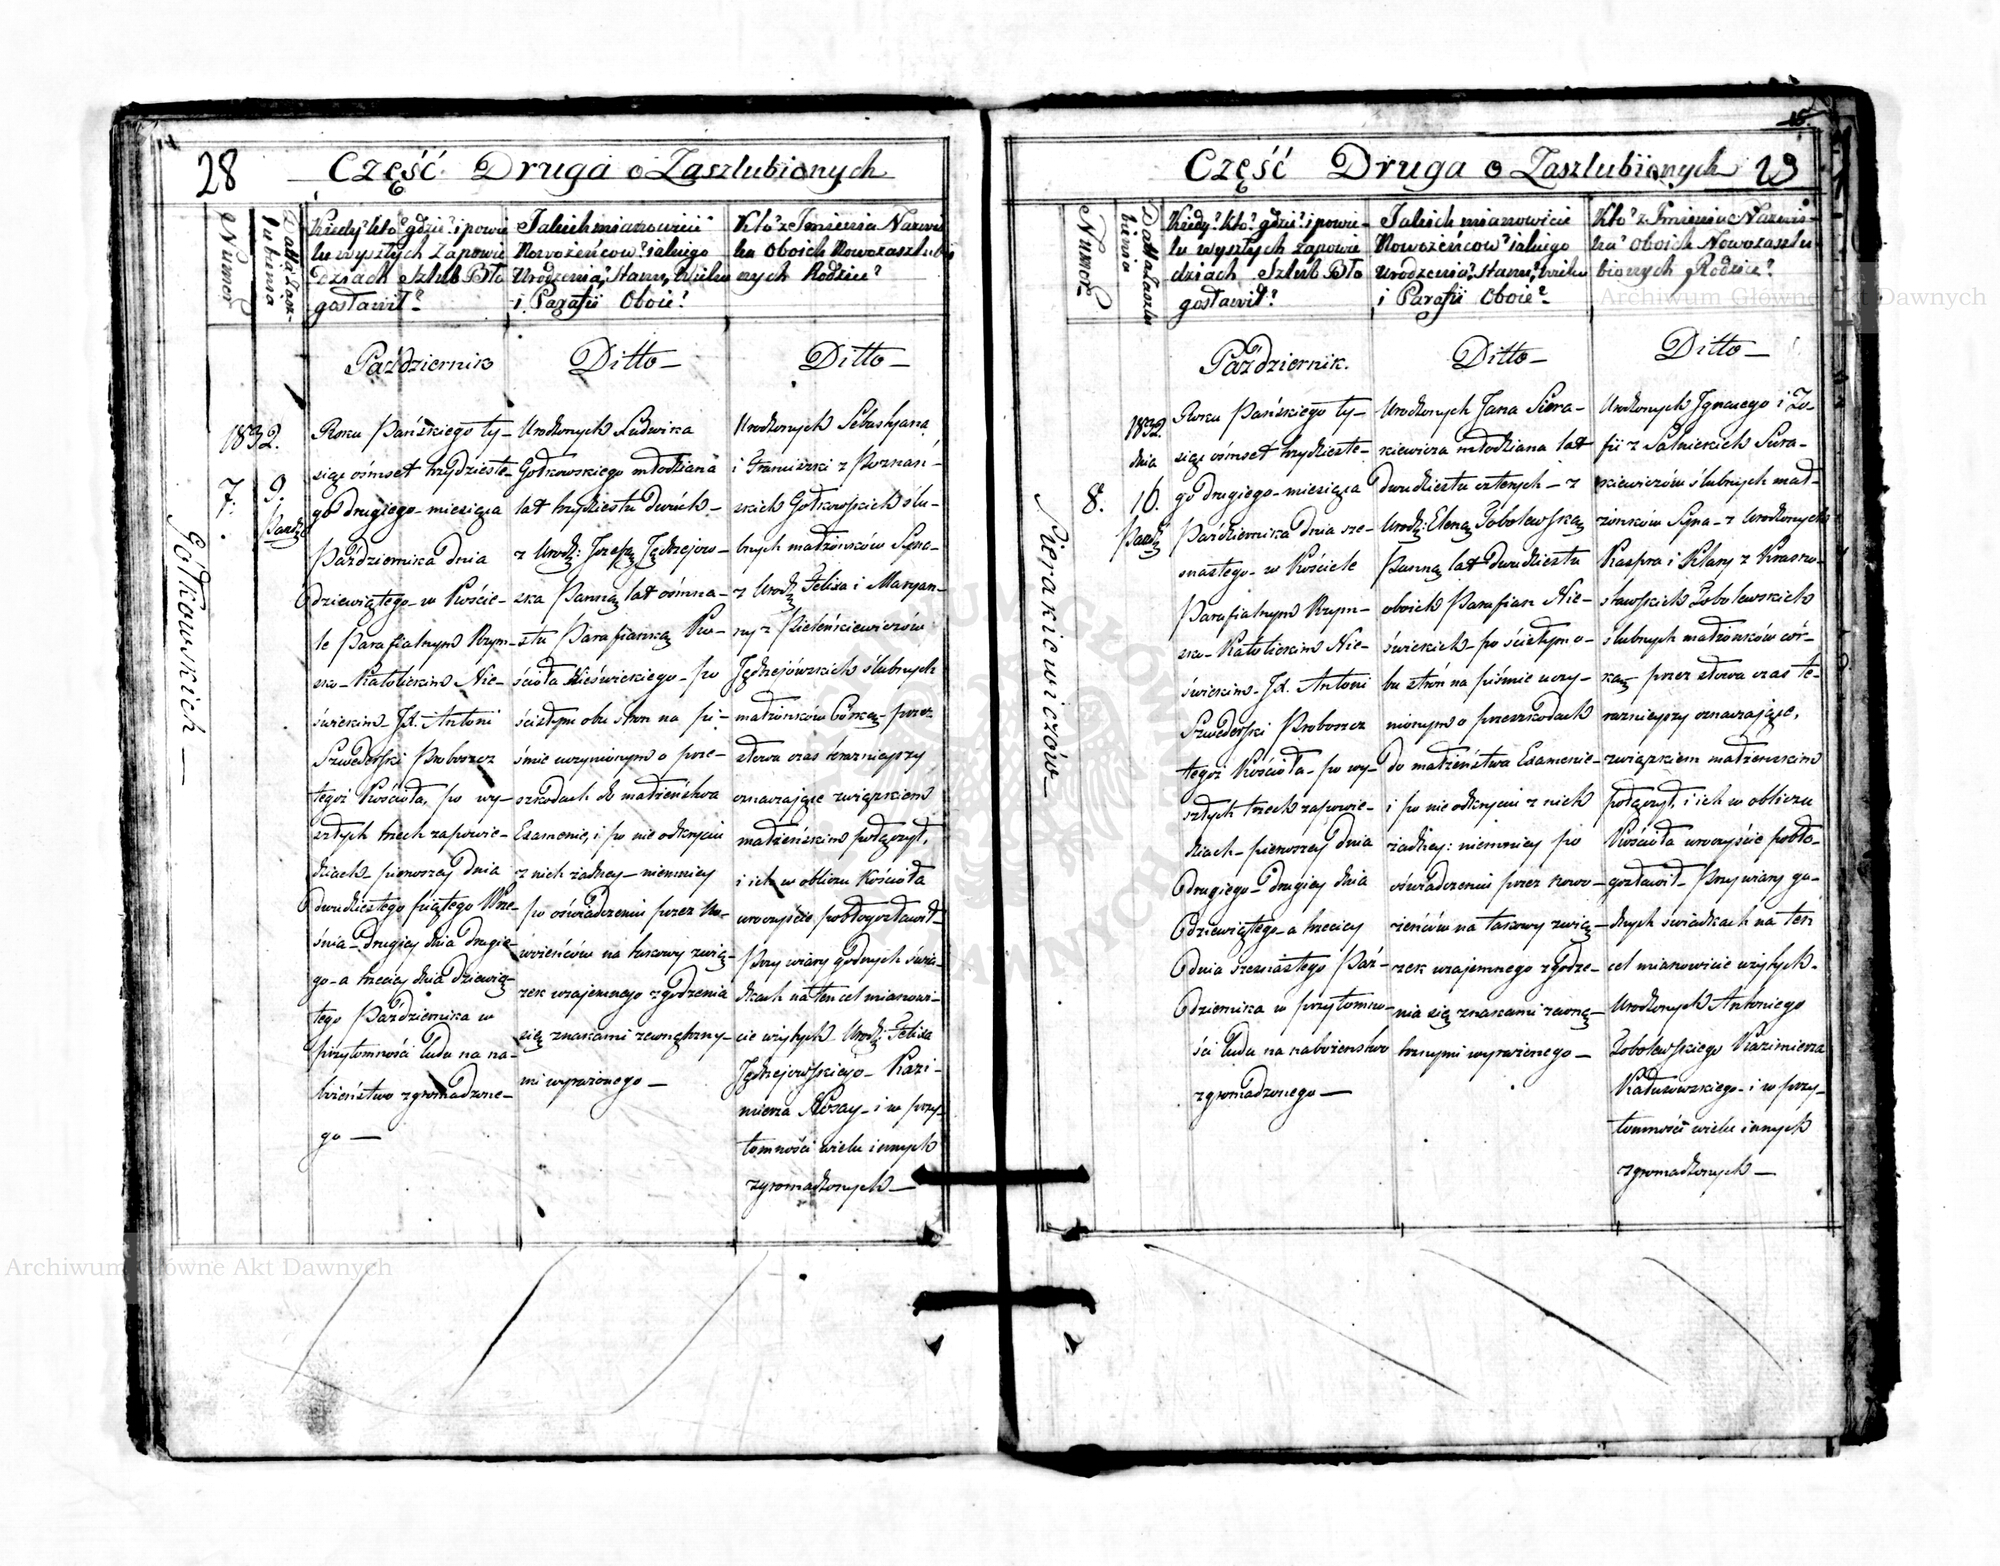 28
Część Druga o Zaszlubionych
Numer
Datta Zasz-
lubienia
Kiedy? kto? gdzie? i powie
lu wyszłych Zapowie
dziach Szlub Bło
gosławił?
Jakich mianowicie
Nowożeńcow? iakiego
Urodzenia, Stanu, Wieku
i Parafii Oboie?
Kto? z Imienia Nazwi
ska Oboich Nowozaszlubi
onych Rodzice?
Październik
Ditto —
Ditto —
Gołkowskich —
1832.
7.
9.
Paźdz
Roku Pańskiego ty-
siąc ośmset trzydzieste-
go drugiego miesiąca
Października Dnia
dziewiątego w Koście-
le Parafialnym Rzym-
sko-Katolickim Nie-
świezkim JX. Antoni
Szwederski Proboszcz
tegoż Kościoła, po wy-
szłych trzech zapowie-
dziach pierwszey Dnia
dwudziestego piątego Wrze-
śnia - drugiey dnia drugie-
go - a trzeciey dnia dziewią-
tego Października w
przytomności Ludu na na-
bożeństwo zgromadzone-
go —
Urodzonych Ludwika
Gołkowskiego młodziana
lat trzydziestu dwóch -
z Urodz: Jozefą Jędrzejow-
ską Panną lat ośmna-
stu Parafianką Ko-
ścioła Nieświezkiego - po
ścisłym obu stron na pi-
śmie uczynionym o prze-
szkodach do małżeństwa
Examenie, i po nie odkryciu
z nich żadney - niemniey
po oświadczeniu przez No-
wożeńców na takowy zwią-
zek wzajemnego zgodzenia
się znakami zewnętrzny-
mi wyrażonego —
Urodzonych Sebastyana
i Franciszki z Poznań-
skich Gołkowskich ślu-
bnych małżonków Syna -
z Urodz Felixa i Maryan-
ny z Kieleńkiewiczów
Jędrzejowskich ślubnych
małżonków Córką - przez
słowa czas teraznieyszy
oznaczające związkiem
małżeńskim połączył,
i ich w obliczu Kościoła
uroczyście pobłogosławił -
Przy wiary godnych świa-
dkach na ten cel mianowi-
cie wzytych Urodz: Felixa
Jędrzejowskiego - Kazi-
mierza Nozay - i w przy-
tomności wielu innych
zgromadzonych —
29
Część Druga o Zaszlubionych
Numer
Datta Zaszlu
bienia
Kiedy? kto? gdzie? i powie-
lu wyszłych zapowie
dziach Szlub Bło
gosławił?
Jakich mianowicie
Nowożeńcow? iakiego
Urodzenia? Stanu, wieku
i Parafii Oboie?
Kto? z Imienia Nazwis-
ka? Oboich Nowozaszlu
bionych Rodzice?
Październik.
Ditto —
Ditto —
Sierakiewiczów —
1832.
dnia
8.
16.
Paźdz
Roku Pańskiego ty-
siąc ośmset trzydzieste-
go drugiego - miesiąca
Października Dnia sze-
snastego - w Kościele
Parafialnym Rzym-
sko-Katolickim Nie-
świezkim - JX. Antoni
Szwederski Proboszcz
tegoż Kościoła - po wy-
szłych trzech zapowie-
dziach - pierwszey dnia
drugiego - drugiey dnia
dziewiątego - a trzeciey
dnia szesnastego Paź-
dziernika w przytomno-
ści Ludu na nabożenstwo
zgromadzonego —
Urodzonych Jana Siera-
kiewicza młodziana lat
dwudziestu czterych - z
Urodz: Eleną Sobolewską
Panną lat Dwudziestu
oboich Parafian Nie-
świezkich - po ścisłym o-
bu stron na piśmie uczy-
nionym o przeszkodach
do małżeństwa Examenie -
i po nie odkryciu z nich
żadney: niemniey po
oświadczeniu przez Nowo-
żeńców na takowy zwią-
zek wzajemnego zgodze-
nia się znakami zewnę-
trznymi wyrażonego —
Urodzonych Ignacego i Zo-
fii z Salnickich Siera-
kiewiczów ślubnych mał-
żonków Syna - z Urodzonych
Kaspra i Klary z Krasno-
sławskich Sobolewskich
ślubnych małżonków cór-
ką przez słowa czas te-
raznieyszy oznaczające,
związkiem małżenskim
połączył, i ich w obliczu
Kościoła uroczyście pobło-
gosławił - Przy wiary go-
dnych świadkach na ten
cel mianowicie wzytych -
Urodzonych Antoniego
Sobolewskiego Kazimierza
Kaduszowskiego - i w przy-
tomności wielu innych
zgromadzonych —
Archiwum Główne Akt Dawnych
Archiwum Główne Akt Dawnych